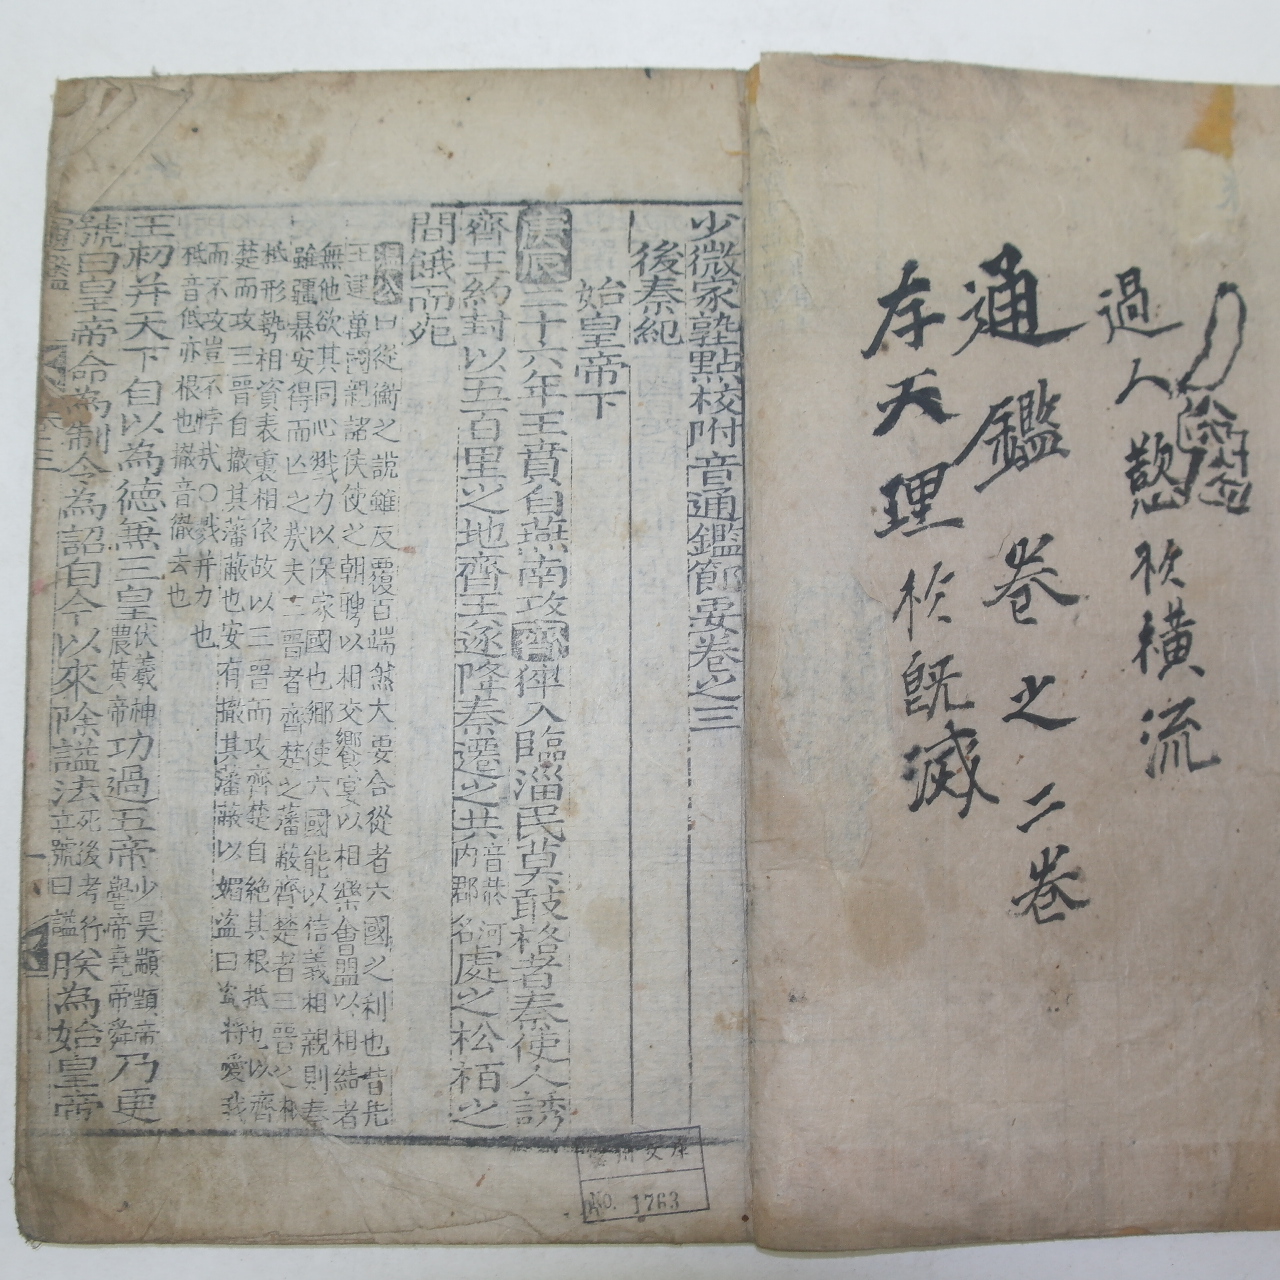 過人慾於橫流
通鑑卷之二卷
存天理於既滅
少微家塾點校附音通鑑節要卷之三
後秦紀
始皇帝下
庚辰二十六年王賁自燕南攻齊猝入臨淄民莫敢格者秦使人誘
齊王約封以五百里之地齊王遂降秦遷之共音恭河內郡名處之松栢之
間餓而死
溫公曰從衡之說雖反覆百端然大要合從者六國之利也昔先
王建萬國親諸侯使之朝聘以相交饗宴以相樂會盟以相結者
無他欲其同心戮力以保家國也鄉使六國能以信義相親則秦
雖彊暴安得而亡之哉夫三晉者齊楚之藩蔽齊楚者三晉之根
柢形勢相資表裏相依故以三晉而攻齊楚自絕其根柢也以齊
楚而攻三晉自撤其藩蔽也安有撤其藩蔽以媚盜曰盜將愛我
而不攻豈不悖哉○戮并力也
柢音低亦根也撤音徹去也
王初并天下自以為德兼三皇伏羲神農黃帝功過五帝少昊顓頊帝嚳帝堯帝舜乃更
號曰皇帝命為制令為詔自今以來除謚法死後考行立號曰謚朕為始皇帝
通鑑
卷三
No. 1763